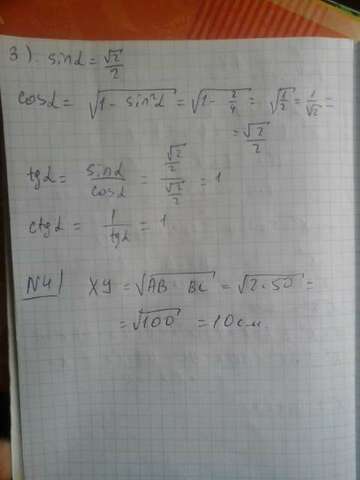 3). sinα = √2/2
cosα = √(1 - sin²α) = √(1 - 2/4) = √(1/2) = 1/√2 =
= √2/2
tgα = sinα/cosα = (√2/2)/(√2/2) = 1
ctgα = 1/tgα = 1
N4) XY = √(AB · BC) = √(2 · 50) =
= √100 = 10 см.